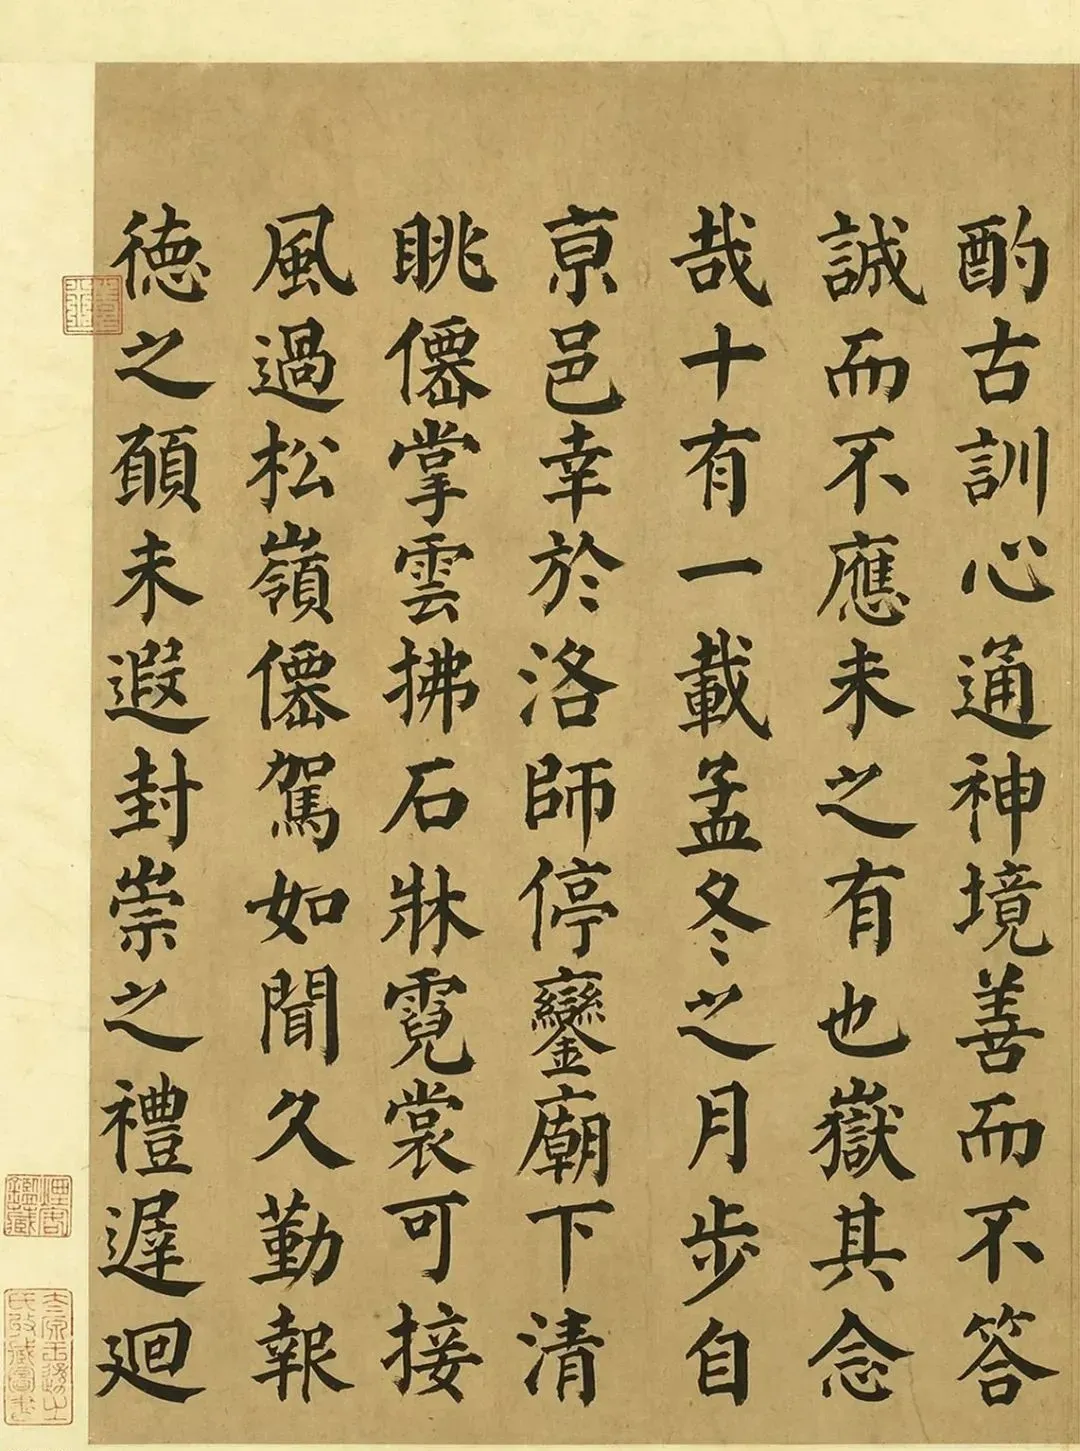 酌古訓心通神境善而不答
誠而不應未之有也嶽其念
哉十有一載孟冬之月步自
京邑幸於洛師停鑾廟下清
眺僊掌雲拂石牀霓裳可接
風過松嶺僊駕如聞久勤報
德之願未遐封崇之禮遲迴